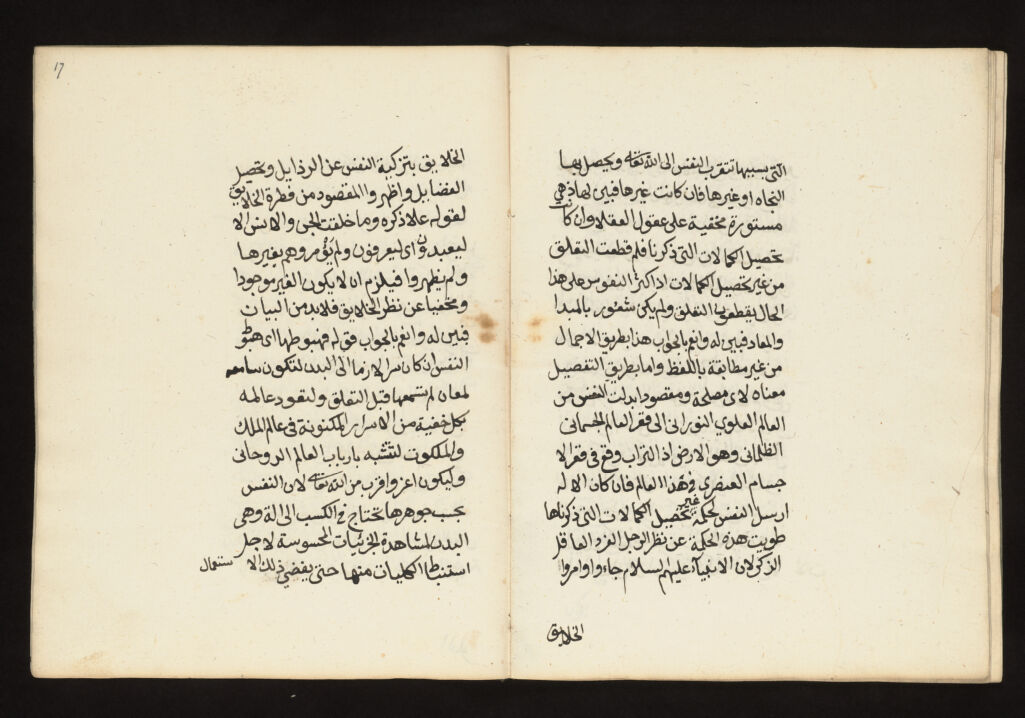 التي بسببها تتقرب النفس الى الله تعالى ويحصل بها
النجاه او غيرها فان كانت غيرها فبين لها ذهي
مستورة مخفية على عقول العقلا وان كانت
تحصيل الكمالات التي ذكرنا فلم قطعت التعلق
من غير تحصيل الكمالات اذ اكثر النفوس على هذا
الحال يقطعون التعلق ولم يكن شعور بالمبدا
والمعاد فبين له وانعم بالجواب هذا بطريق الاجمال
من غير مطابقة باللفظ واما بطريق التفصيل
معناه لاي مصلحة ومقصود ابدلت النفس من
العالم العلوي النوراني الى قعر العالم الجسماني
الظلماني وهو الارض اذ التراب وقع في قعر الا
جسام العنصري في هذا العالم فان كان الاله
ارسل النفس لحكمة غير تحصيل الكمالات التي ذكرناها
طويت هذه الحكمة عن نظر الرجل الفرد العاقل
الذكي لان الانبيآء عليهم السلام جاءوا وامروا
الخلايق
١٧
الخلايق بتزكية النفس عن الرذايل وتحصيل
الفضايل واظهروا المقصود من فطرة الخلايق
لقوله علا ذكره وما خلقت الجن والانس الا
ليعبدون اى ليعرفون ولم يؤمروهم بغيرها
ولم يظهروا فيلزم ان لا يكون الغير موجودا
ومخفيا عن نظر الخلايق فلا بد من البيان
فبين له وانعم بالجواب قوله فهبوطها اى هبوط
النفس ان كان امرا لازما الى البدن لتكون سامعه
لمعان لم تسمعها قبل التعلق ولتعود عالمه
بكل خفية من الاسرار المكنونة في عالم الملك
والملكوت لتتشبه بارباب العالم الروحاني
وليكون اعز واقرب من الله تعالى لان النفس
بحسب جوهرها تحتاج في الكسب الى الة وهي
البدن لمشاهدة الجزئيات المحسوسة لاجل
استنباط الكليات منها حتى يفضي ذلك الا ستعمال